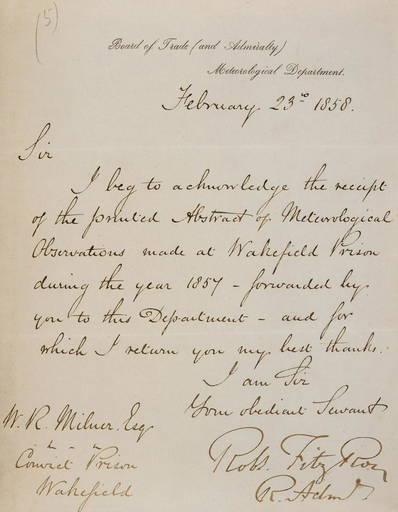 (5)
Board of Trade (and Admiralty)
Meteorological Department.
February 23rd 1858.
Sir
I beg to acknowledge the receipt
of the printed Abstract of Meteorological
Observations made at Wakefield Prison
during the year 1857 – forwarded by
you to this Department – and for
which I return you my best thanks.
I am Sir
Your obedient Servant
Robt. FitzRoy
R. Adml
W. R. Milner. Esq
Convict Prison
Wakefield